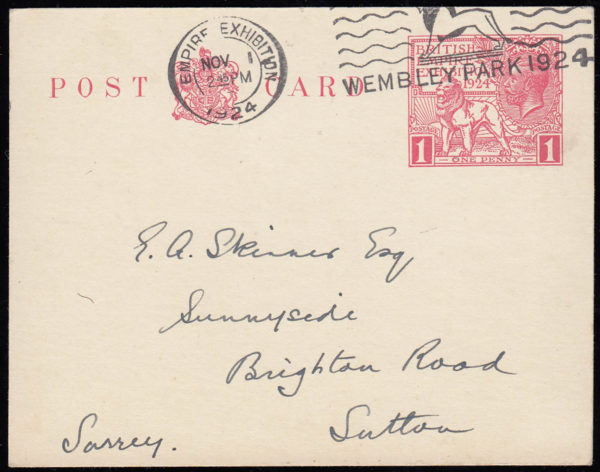 EMPIRE EXHIBITION
NOV 1
PM
1924
WEMBLEY PARK 1924
POST CARD
BRITISH
EMPIRE
EXHIBITION
1924
POSTAGE POSTAGE
1 ONE PENNY 1
E. A. Skinner Esq
Sunnyside
Brighton Road
Sutton
Surrey.